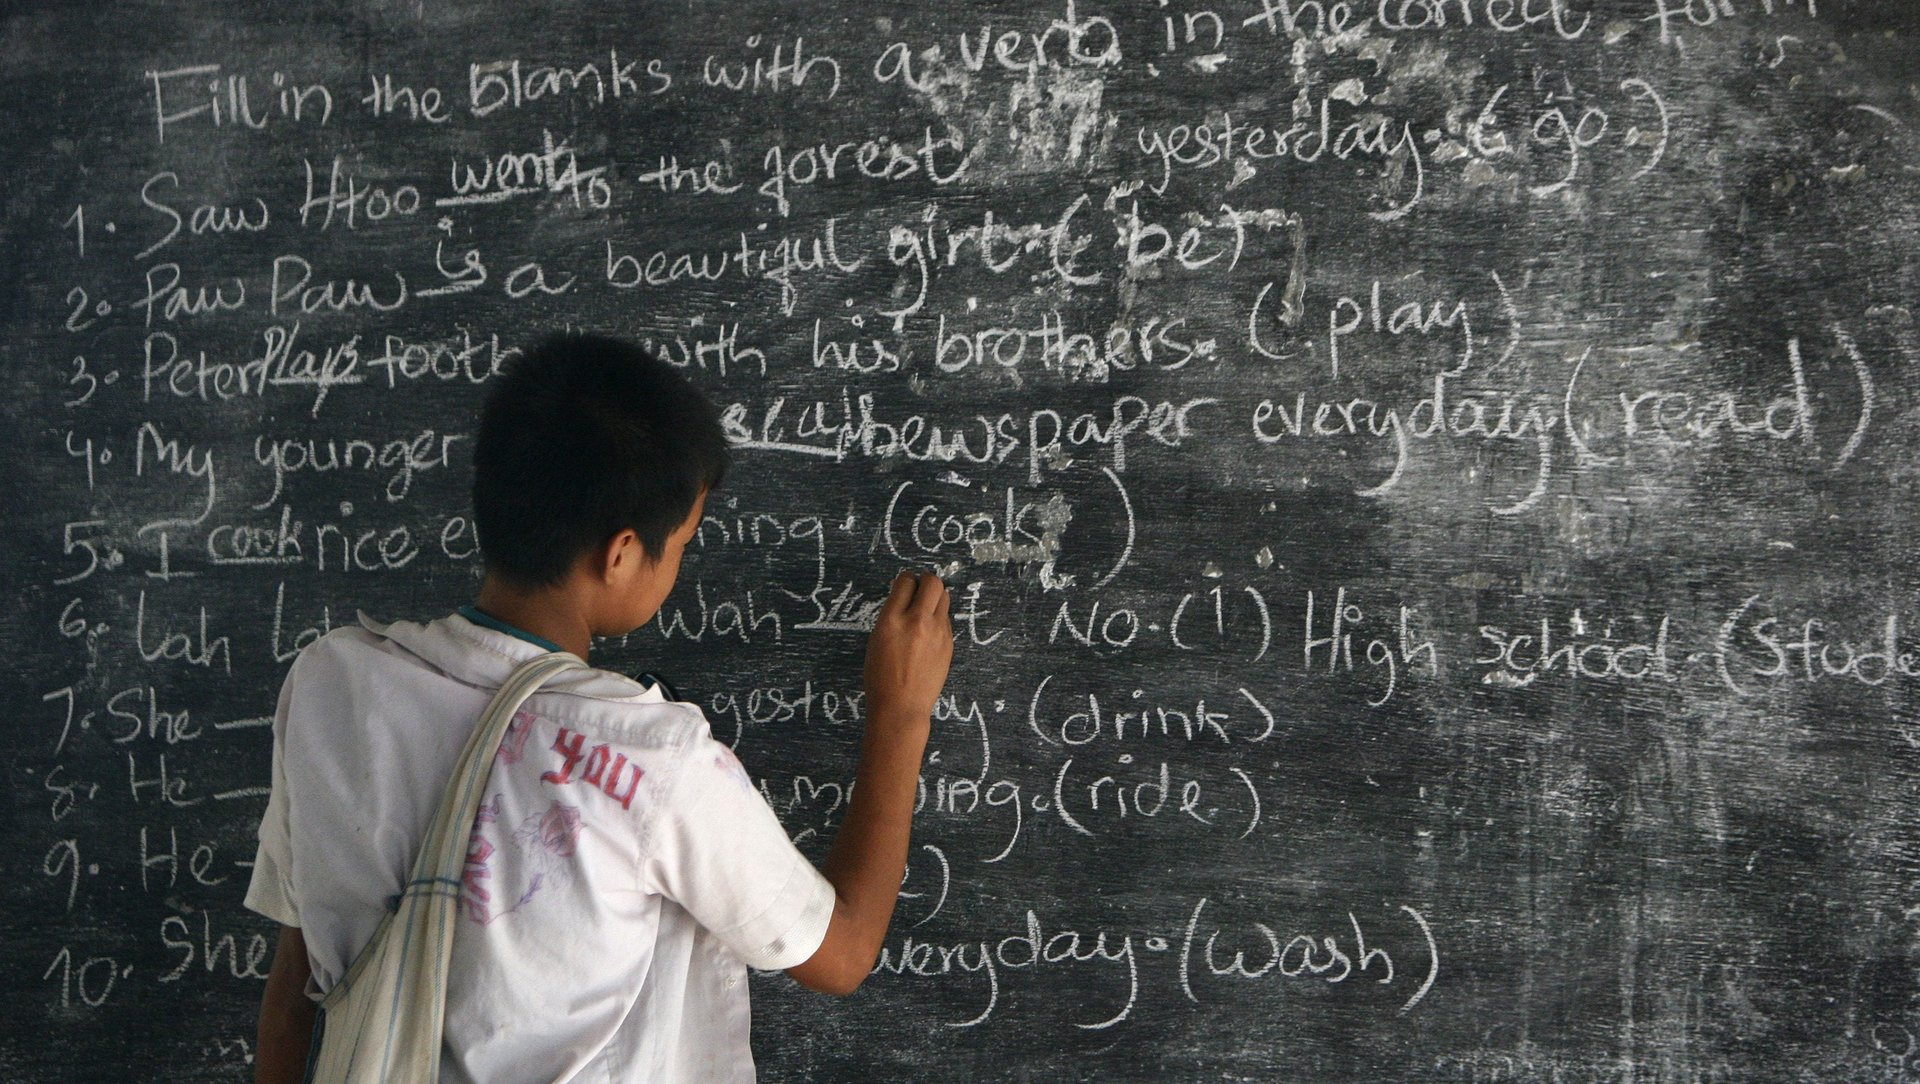 Fill in the blanks with a verb in the correct form
1. Saw Htoo went to the forest yesterday. (go.)
2. Paw Paw is a beautiful girl. (be)
3. Peter Plays with his brothers. (play)
4. My younger newspaper everyday (read)
5. I cook rice (cook)
6. Lah Wah at No. (1) High school. (
7. She ___ (drink)
8. He ___ (ride)
9. He
10. She everyday. (wash)
I YOU